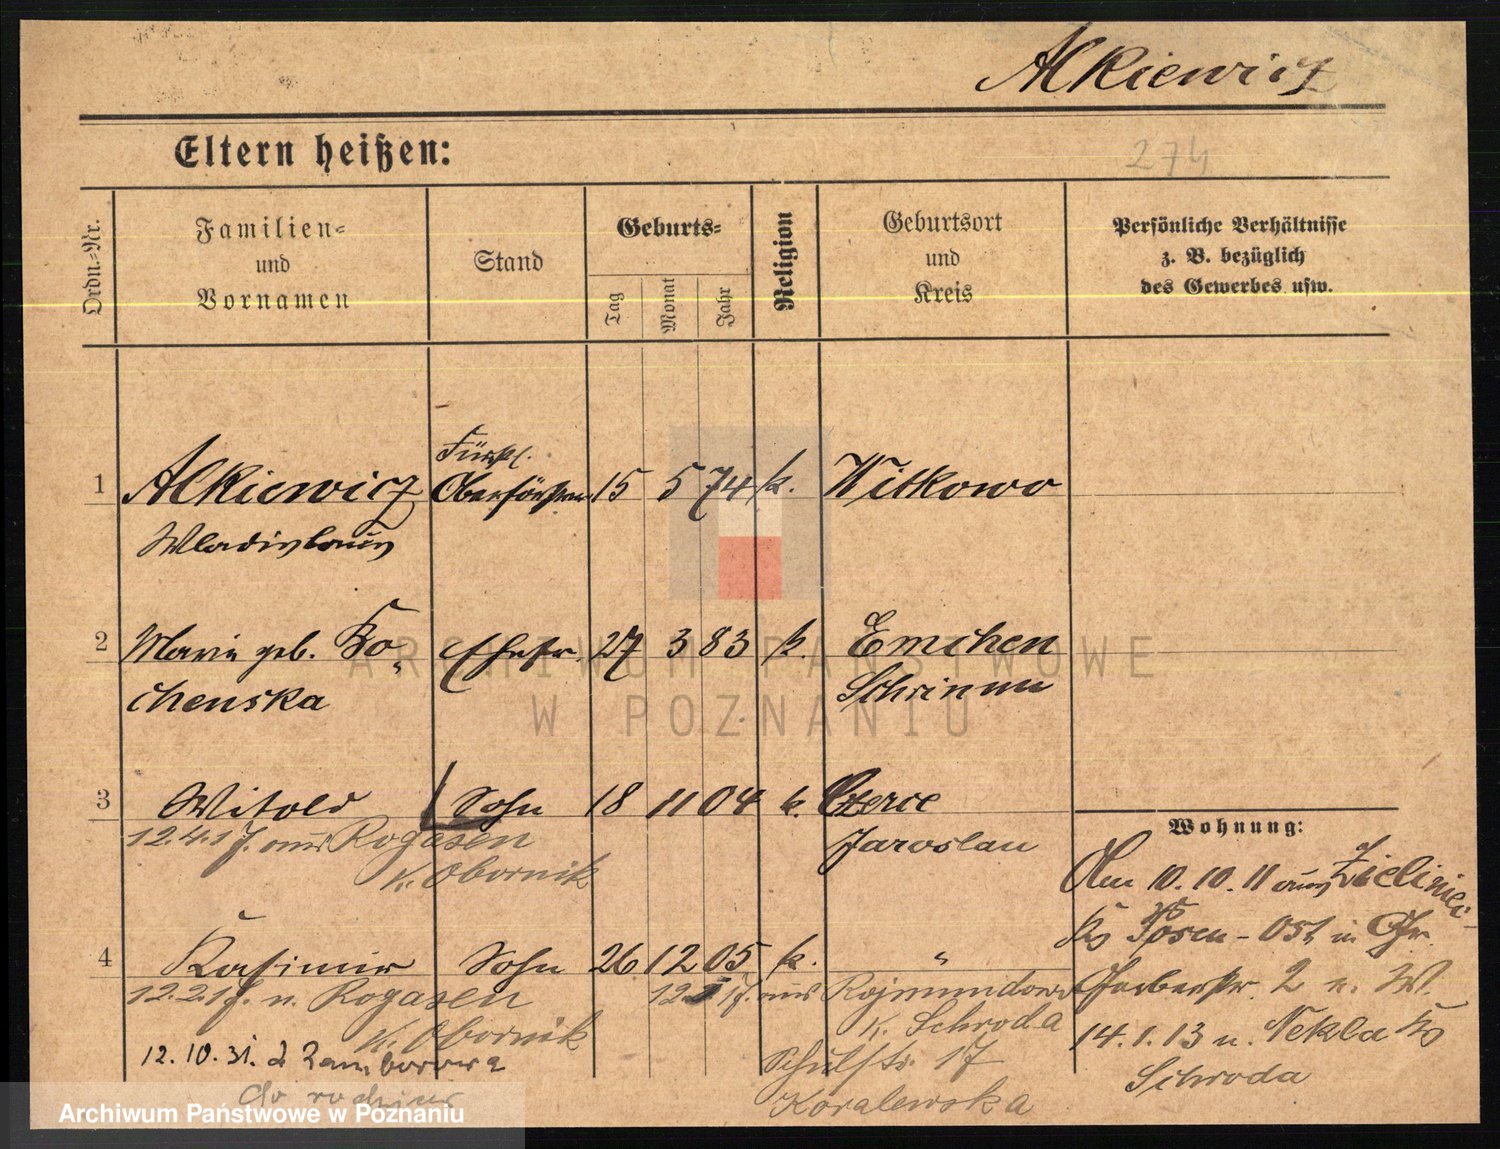 Alkiewicz
Eltern heißen:
274
Ordn.-Nr.
Familien-
und
Vornamen
Stand
Geburts-
Tag
Monat
Jahr
Religion
Geburtsort
und
Kreis
Persönliche Verhältnisse
z. B. bezüglich
des Gewerbes usw.
1 Alkiewicz Fürstl. Oberförster 15 5 74 k. Witkowo
Wladislaus
2 Marie geb. Ko- Ehefr. 27 3 83 k. Emchen
chenska Schrimm
3 Witold Sohn 18 11 04 k. Czerce
12.4.17. aus Rogasen Jaroslau
K. Obornik
Wohnung:
Am 10.10.11 aus Zieliniec
Krs Posen-Ost in Gr.
4 Kasimir Sohn 26 12 05 k. "
Gerberstr. 2 n. W.
12.2.17. n. Rogasen
K. Obornik
K. Schroda
14.1.13 n. Nekla Krs
Schroda
12.10.31. z Zamborowa
do
Schulstr. 17
Koralewska
ARCHIWUM PAŃSTWOWE
W POZNANIU
Archiwum Państwowe w Poznaniu